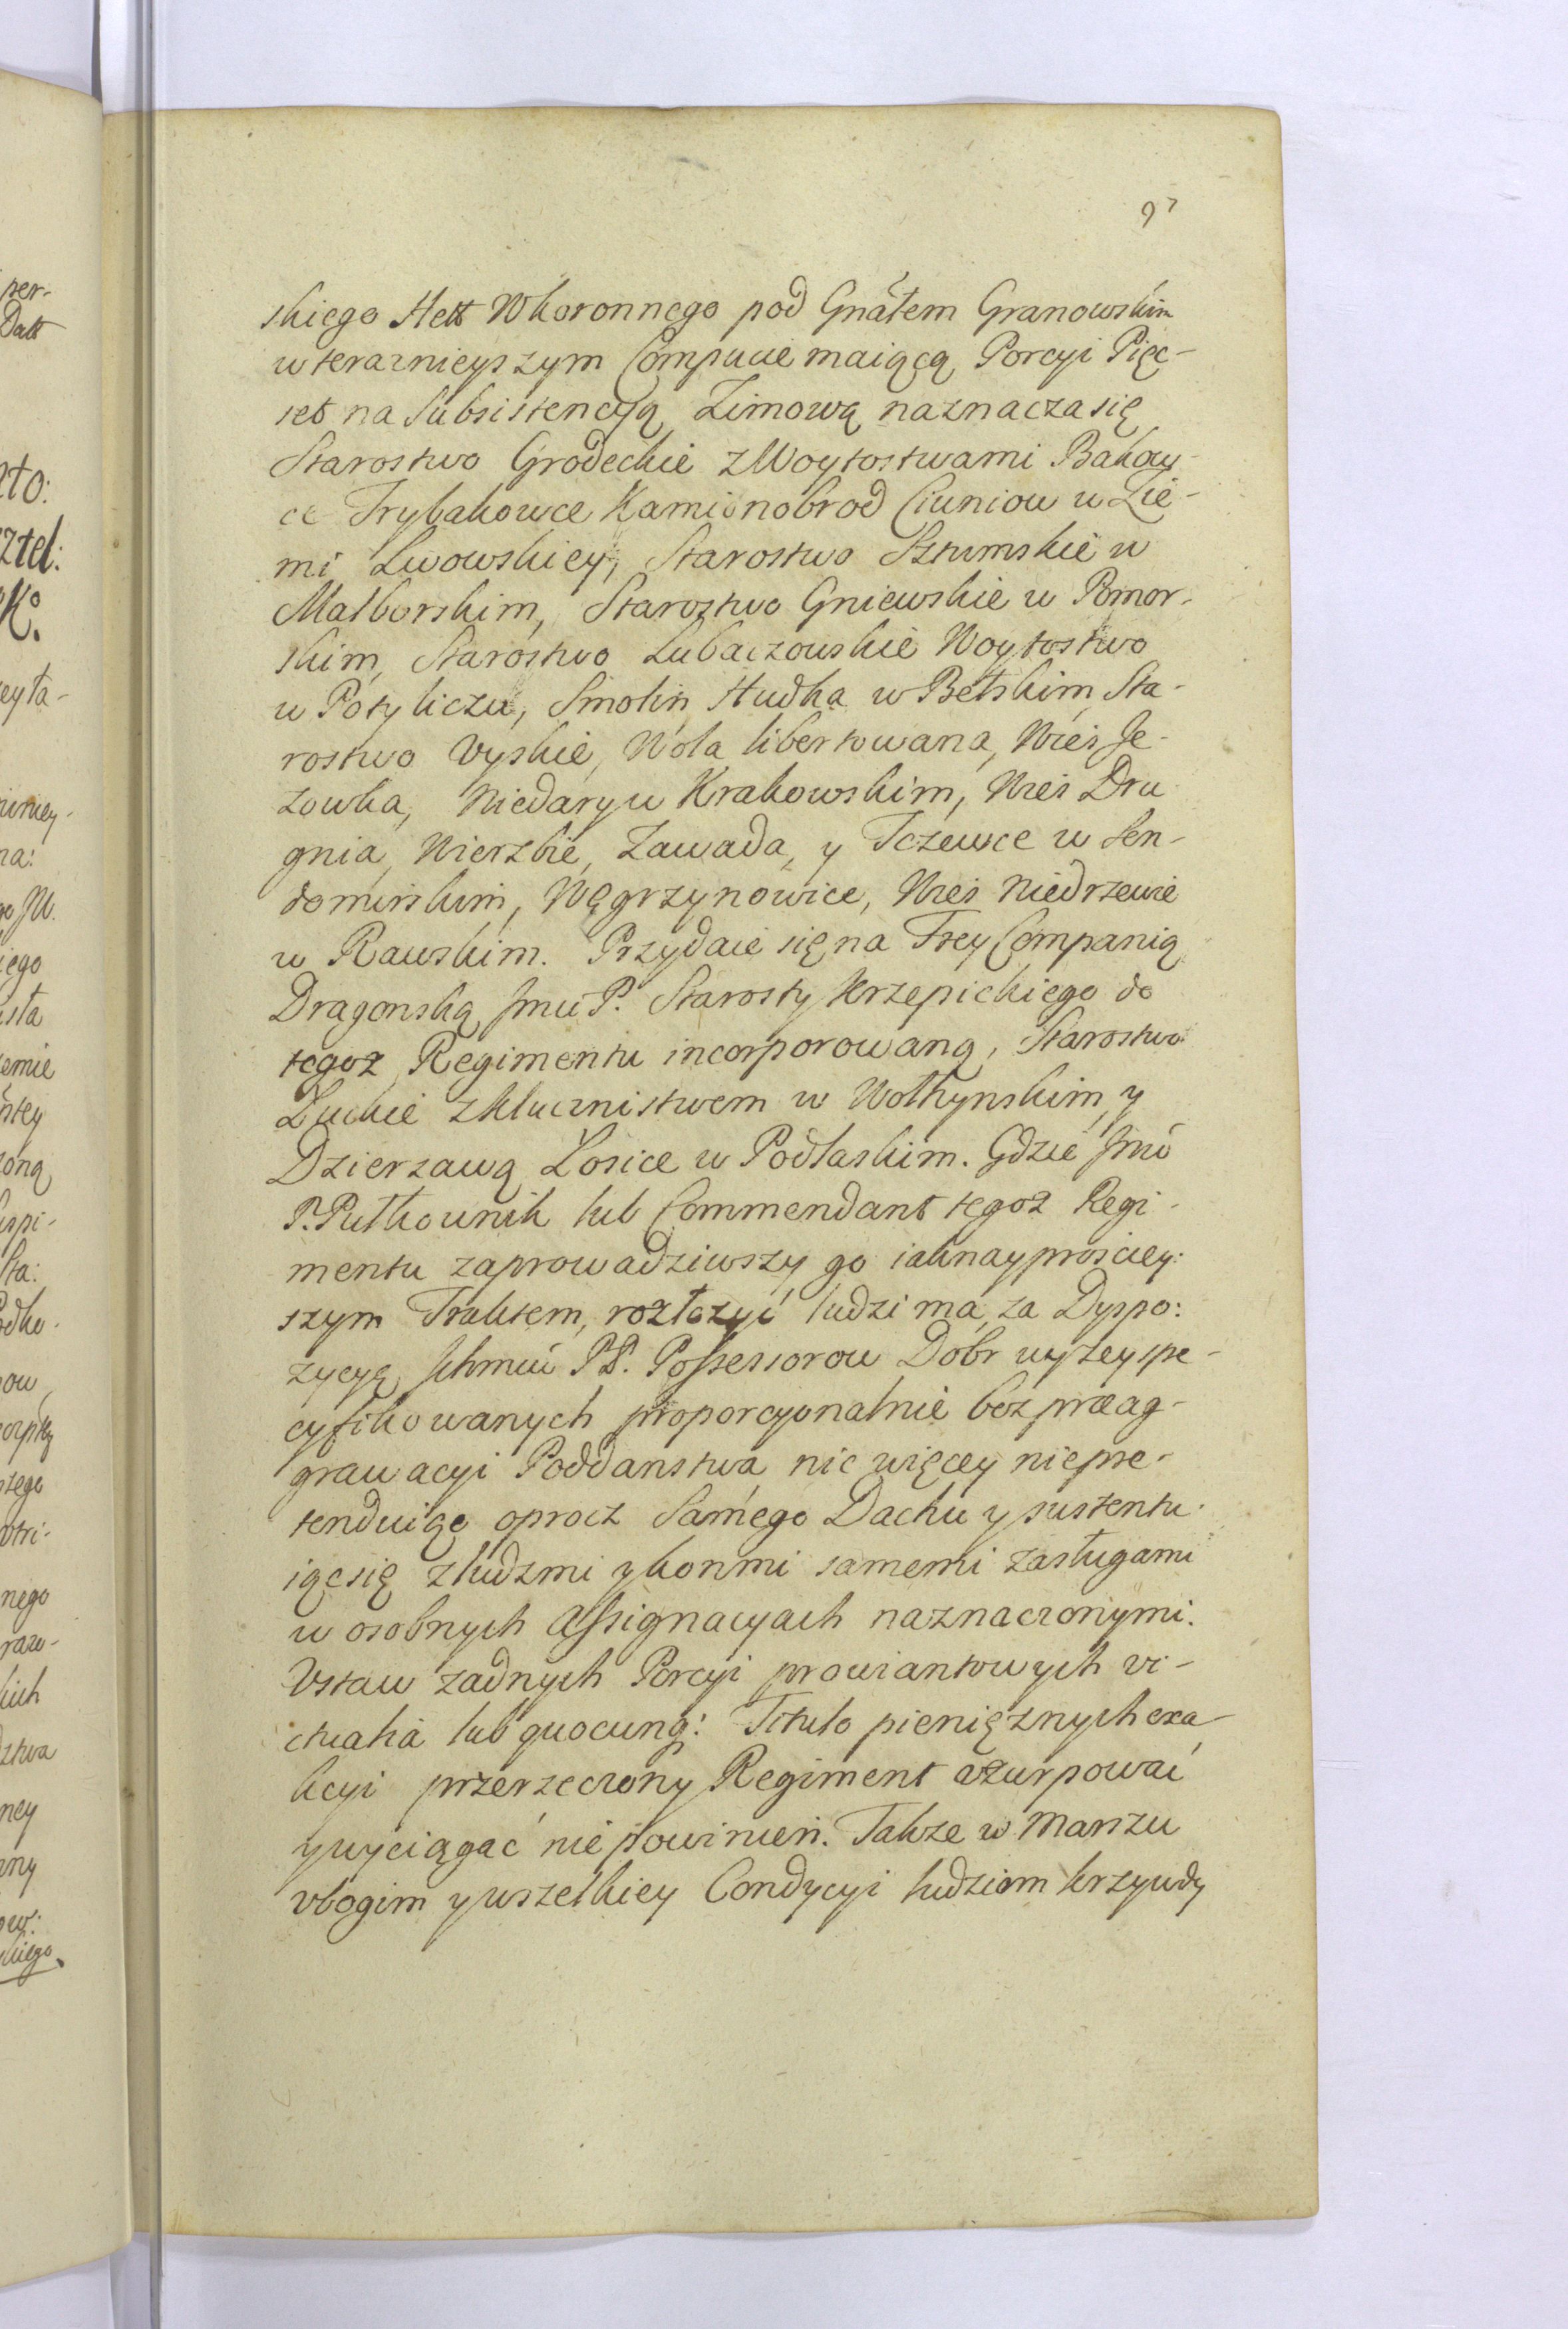 97
skiego Hett Wkoronnego pod Gnałem Granowskim
w teraznieyszym Compucie maiącą Porcyi Pięc-
set na Subsistencyą Zimową naznacza się
Starostwo Grodeckie z Woytostwami Bakowy-
ce Trybakowce Kamienobrod Ciuniow w Zie-
mi Lwowskiey, Starostwo Sztumskie w
Malborskim, Starostwo Gniewskie w Pomor-
skim, Starostwo Lubaczowskie Woytostwo
w Potyliczu, Smolin Hudka w Bełskim, Sta-
rostwo Vyskie, Wola libertowana, Wieś Je-
zowka, Niedary w Krakowskim, Wieś Dru
gnia, Wierzbie, Zawada, y Tczewce w Sen-
domirskim, Węgrzynowice, Wieś Niedrzewie
w Rawskim. Przydaie się na Frey Companią
Dragonską Jmu P. Starosty Krzepickiego do
tegoz Regimentu incorporowaną, Starostwo
Łuckie z Klucznistwem w Wołhynskim, y
Dzierzawą Łosice w Podlaskim. Gdzie Jmć
P. Pułkownik lub Commendant tegoz Regi-
mentu zaprowadziwszy go iaknayprościey:
szym Traktem, rozłozyć ludzi ma, za Dyspo:
zycyę Ichmciu PP. Possessorow Dobr wyzey spe-
cyfikowanych proporcyonalnie bez præag-
grawacyi Poddanstwa nic więcey niepre-
tenduiąc oprocz Samego Dachu y sustentu-
iąc się z ludzmi y konmi samemi zasługami
w osobnych Assignacyach naznaczonymi.
Vstaw zadnych Porcyi prowiantowych vi-
ctualia lub quocunq: Titulo pieniężnych exa-
kcyi przerzeczony Regiment vzurpować
y wyciągać nie powinien. Takze w Marszu
vbogim y wszelkiey Condycyi ludziom krzywdy